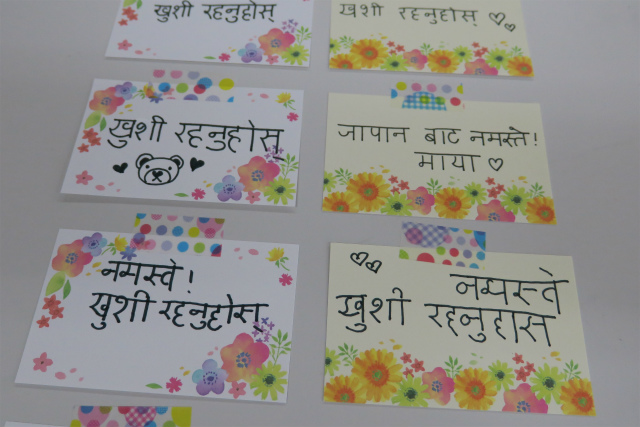 खुशी रहनुहोस्
खुशी रहनुहोस्
खुशी रहनुहोस्
जापान बाट नमस्ते!
माया
नमस्वे!
खुशी रहनुहोस्
नम्पस्वे
खुशी रहनुहास